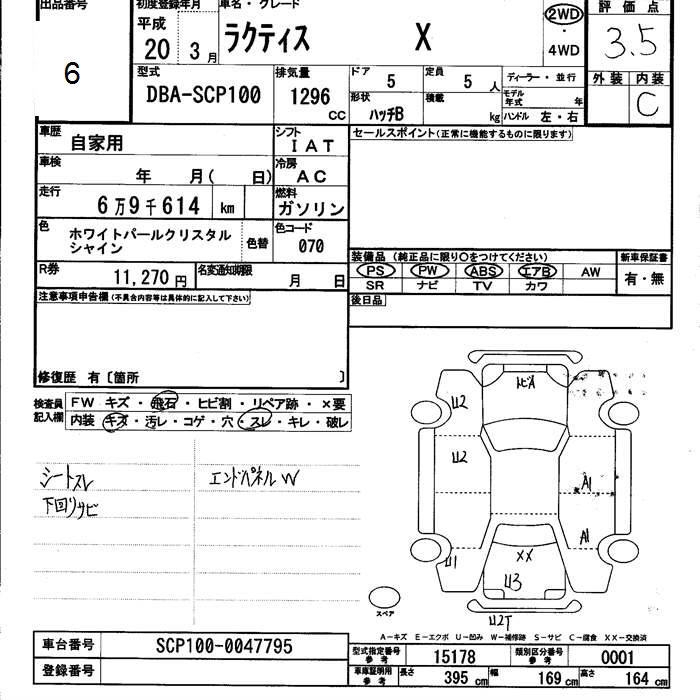 出品番号 初度登録年月 車名・グレード 評価点
6 平成 20 3月 ラクティス X 2WD ・ 4WD 3.5
型式 DBA-SCP100 排気量 1296 CC
ドア 5 定員 5人 ディーラー・並行 外装 内装
形状 ハッチB 積載 kg モデル年式 年 ハンドル 左・右 C
車歴 自家用 シフト IAT セールスポイント(正常に機能するものに限ります)
車検 年 月( 日) 冷房 AC
走行 6万9千614 km 燃料 ガソリン
色 ホワイトパールクリスタル
シャイン 色替 色コード 070
装備品(純正品に限り○をつけてください) 新車保証書
PS PW ABS エアB AW 有・無
SR ナビ TV カワ
R券 11,270円 名変通知期限 月 日
後日品
注意事項申告欄(不具合内容等は具体的に記入して下さい)
修復歴 有〔箇所 〕
検査員記入欄 FW キズ・飛石・ヒビ割・リペア跡・×要
内装 キズ・汚レ・コゲ・穴・スレ・キレ・破レ
シートスレ エンドパネルW
下回リサビ
トビA
U2
U2
A1
A1
U1
XX
U3
U2T
スペア
A-キズ E-エクボ U-凹み W-補修跡 S-サビ C-腐食 XX-交換済
車台番号 SCP100-0047795
登録番号
型式指定番号 参考 15178 類別区分番号 参考 0001
車庫証明用 参考 長さ 395 cm 幅 169 cm 高さ 164 cm